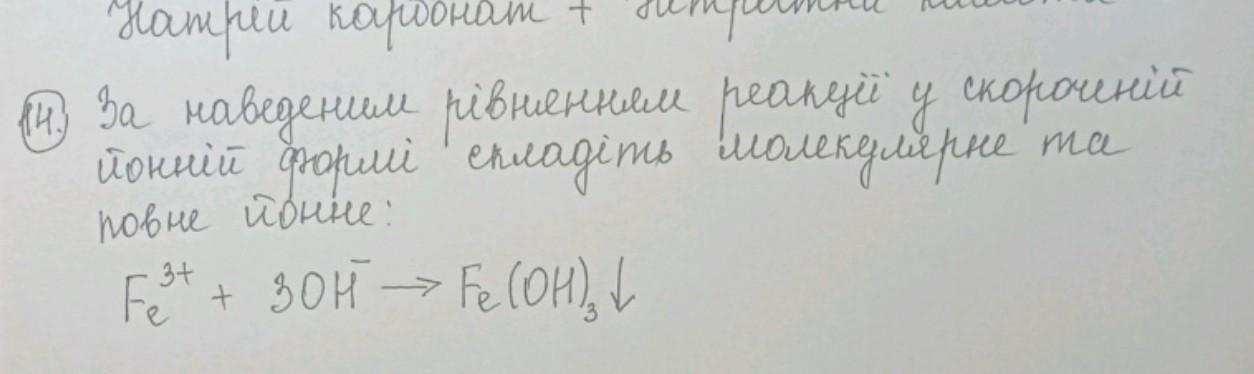 Натрій карбонат +
14. За наведеним рівнянням реакції у скороченій
йонній формі складіть молекулярне та
повне йонне:
Fe³⁺ + 3OH⁻ → Fe(OH)₃↓